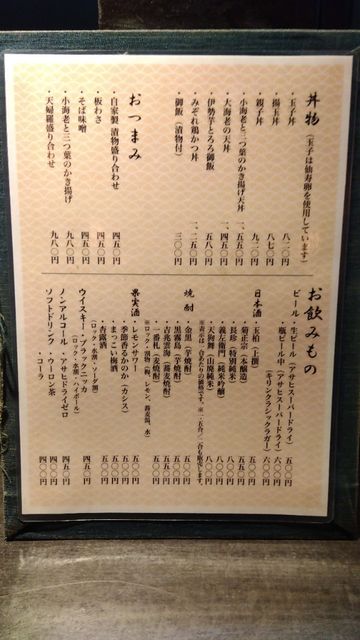 丼物（玉子は仙寿卵を使用しています）
・玉子丼 八二〇円
・揚玉丼 八七〇円
・親子丼 九二〇円
・小海老と三つ葉のかき揚げ天丼 一、五五〇円
・大海老の天丼
・伊勢芋とろろ御飯 五八〇円
・みぞれ鶏かつ丼
・御飯（漬物付） 三〇〇円
おつまみ
・自家製 漬物盛り合わせ 四五〇円
・板わさ 四五〇円
・そば味噌 四五〇円
・小海老と三つ葉のかき揚げ 九八〇円
・天婦羅盛り合わせ 九八〇円
お飲みもの
ビール・生ビール（アサヒスーパードライ） 五〇〇円
・瓶ビール中（アサヒスーパードライ） 六〇〇円
（キリンクラシックラガー） 六〇〇円
日本酒・玉柏（上撰）
・菊正宗（本醸造） 五五〇円
・長珍（特別純米） 八〇〇円
・義左衛門（純米吟醸） 八〇〇円
・天狗舞（山廃純米） 八〇〇円
焼酎・金黒（芋焼酎） 五〇〇円
・黒霧島（芋焼酎） 五〇〇円
・吉兆雲海（蕎麦焼酎） 五〇〇円
・一番札（麦焼酎） 五〇〇円
※ロック、割物（梅、レモン、蕎麦湯、水）
果実酒・レモンサワー 五〇〇円
・季節香るかのか（カシス） 五〇〇円
・まっこい梅酒 五〇〇円
・杏露酒 五〇〇円
（ロック・水割・ソーダ割）
ウイスキー・ブラックニッカ 四五〇円
（ロック・水割・ハイボール）
ノンアルコール・アサヒドライゼロ 四五〇円
ソフトドリンク・ウーロン茶 四〇〇円
・コーラ 四〇〇円